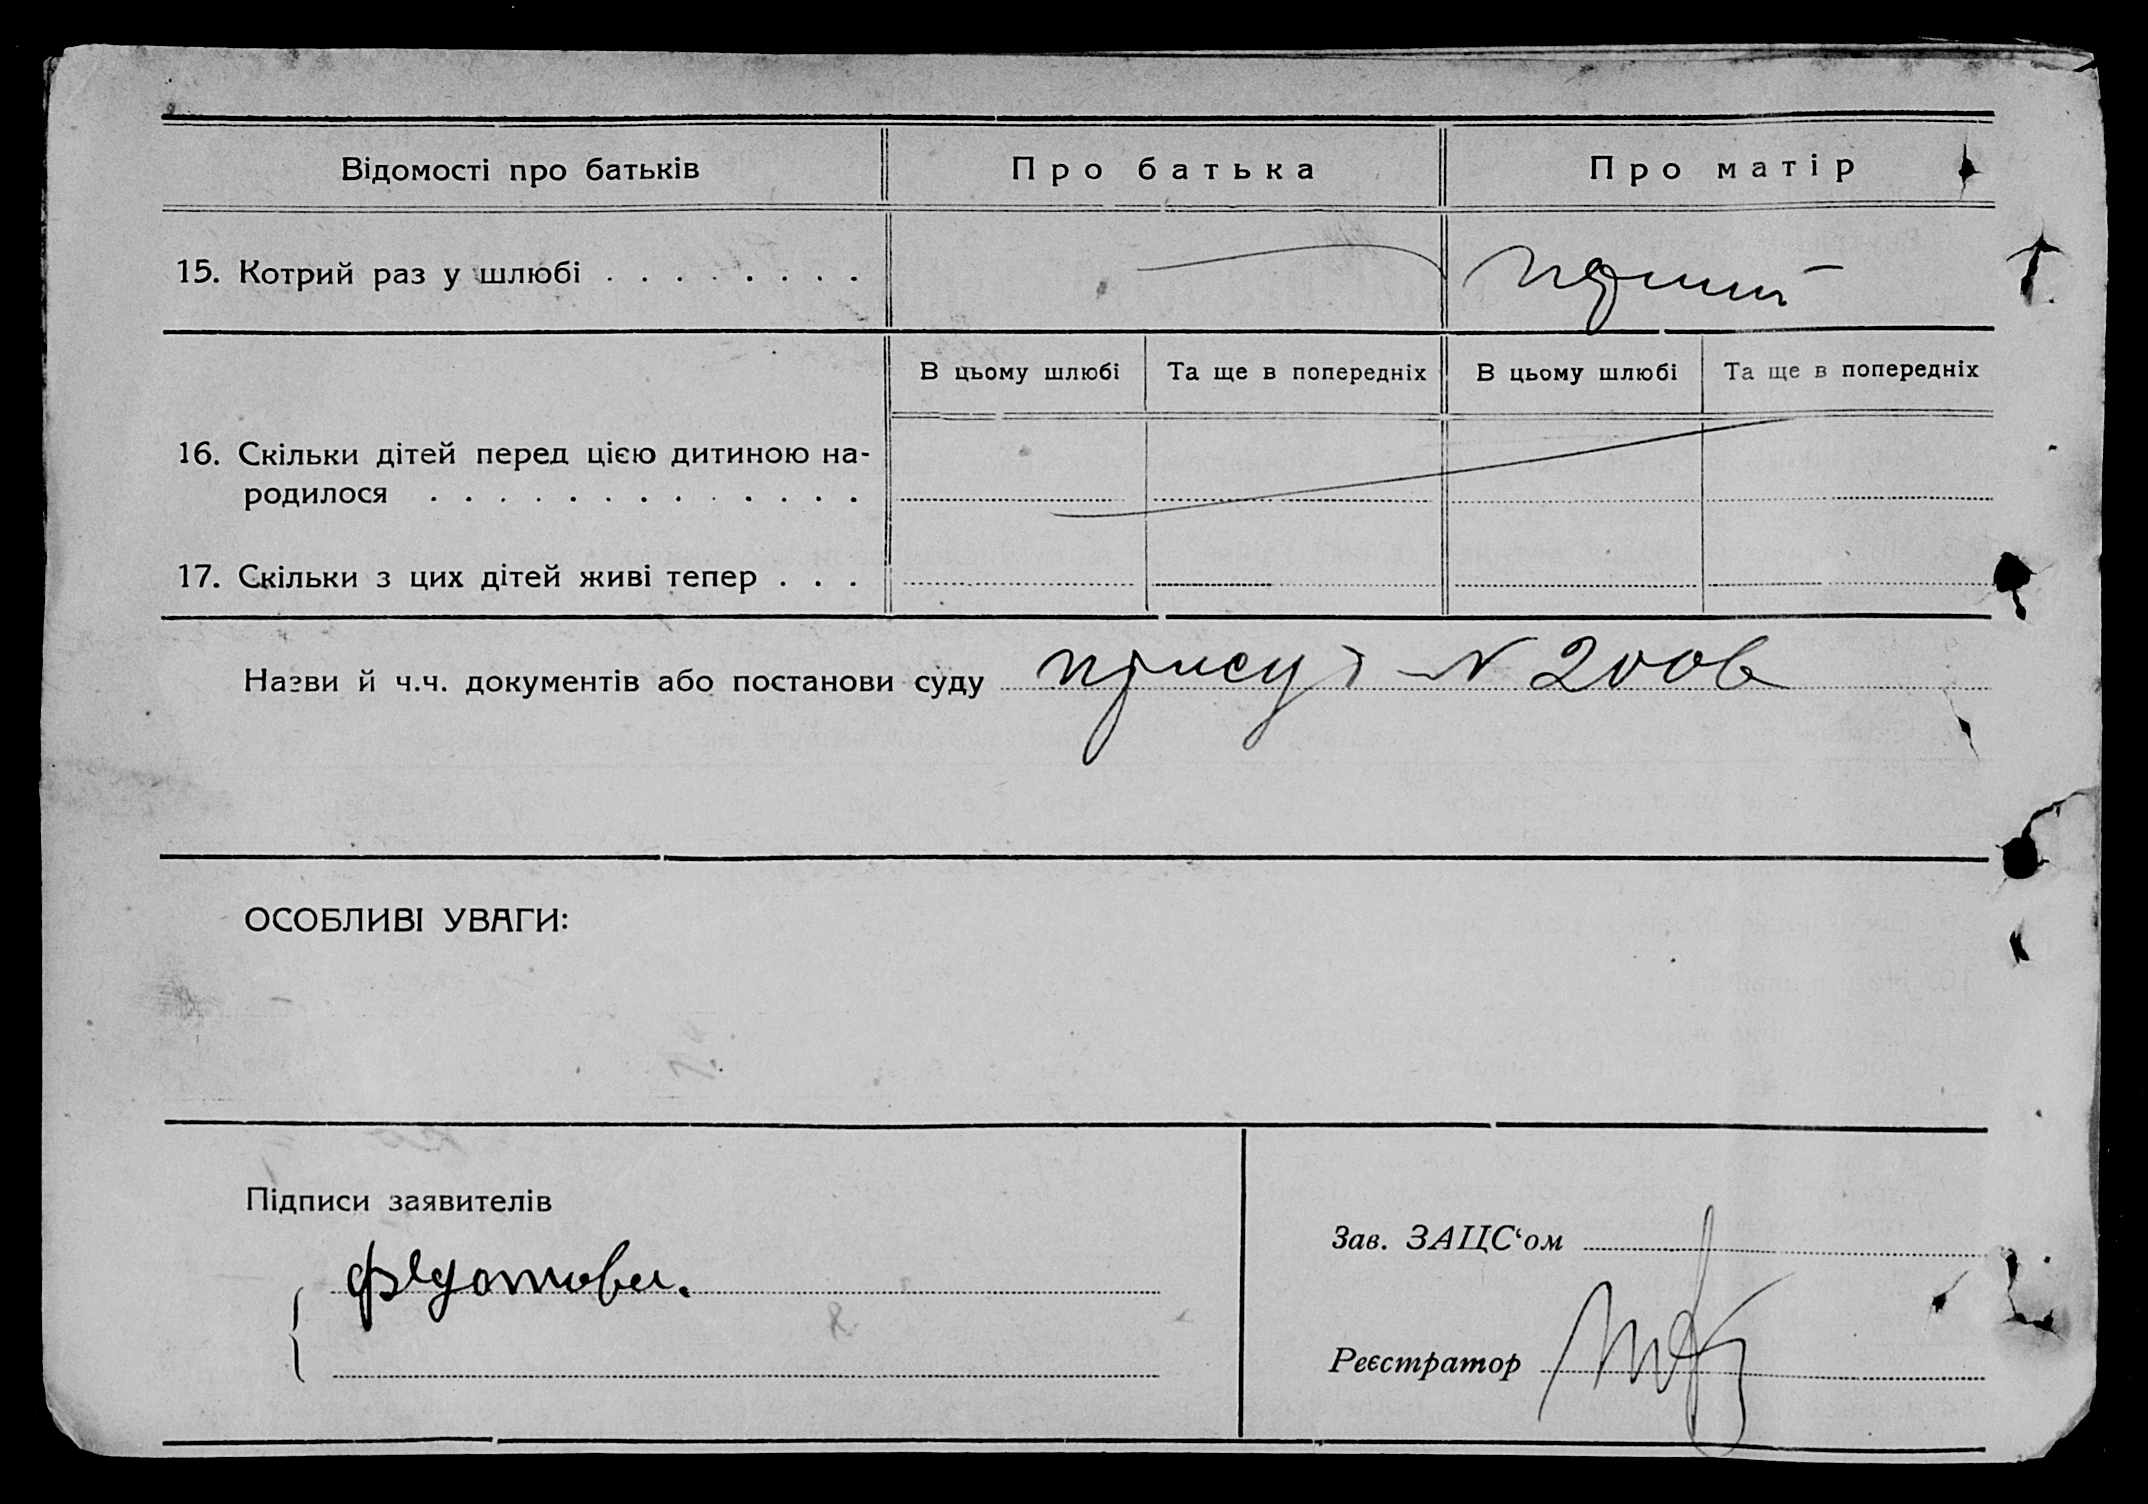 Відомості про батьків
Про батька
Про матір
15. Котрий раз у шлюбі . . . . . . . .
В цьому шлюбі
Та ще в попередніх
В цьому шлюбі
Та ще в попередніх
16. Скільки дітей перед цією дитиною на-
родилося . . . . . . . . . . . . .
17. Скільки з цих дітей живі тепер . . .
Назви й ч.ч. документів або постанови суду
ОСОБЛИВІ УВАГИ:
Підписи заявителів
Федотова.
Зав. ЗАЦС‘ом
Реєстратор